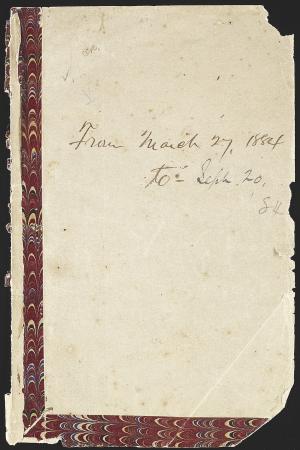 From March 27, 1884
to - Sept. 20,
84